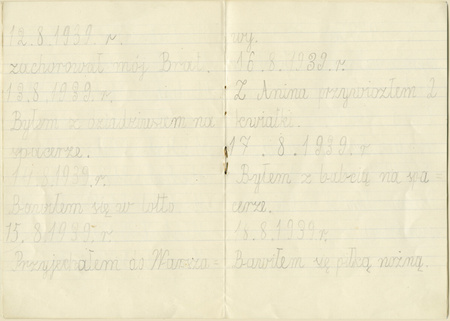 12.8.1939.r.
zachorował mój Brat.
13.8.1939.r.
Byłem z dziadziuszem na
spacerze.
14.8.1939.r.
Bawiłem się w lotto
15.8.1939.r.
Przyjechałem do Warsza-
wy.
16.8.1939.r.
Z Anina przywiozłem 2
kwiatki.
17.8.1939.r
Byłem z babcią na spa
cerze.
18.8.1939r.
Bawiłem się piłką nożną.